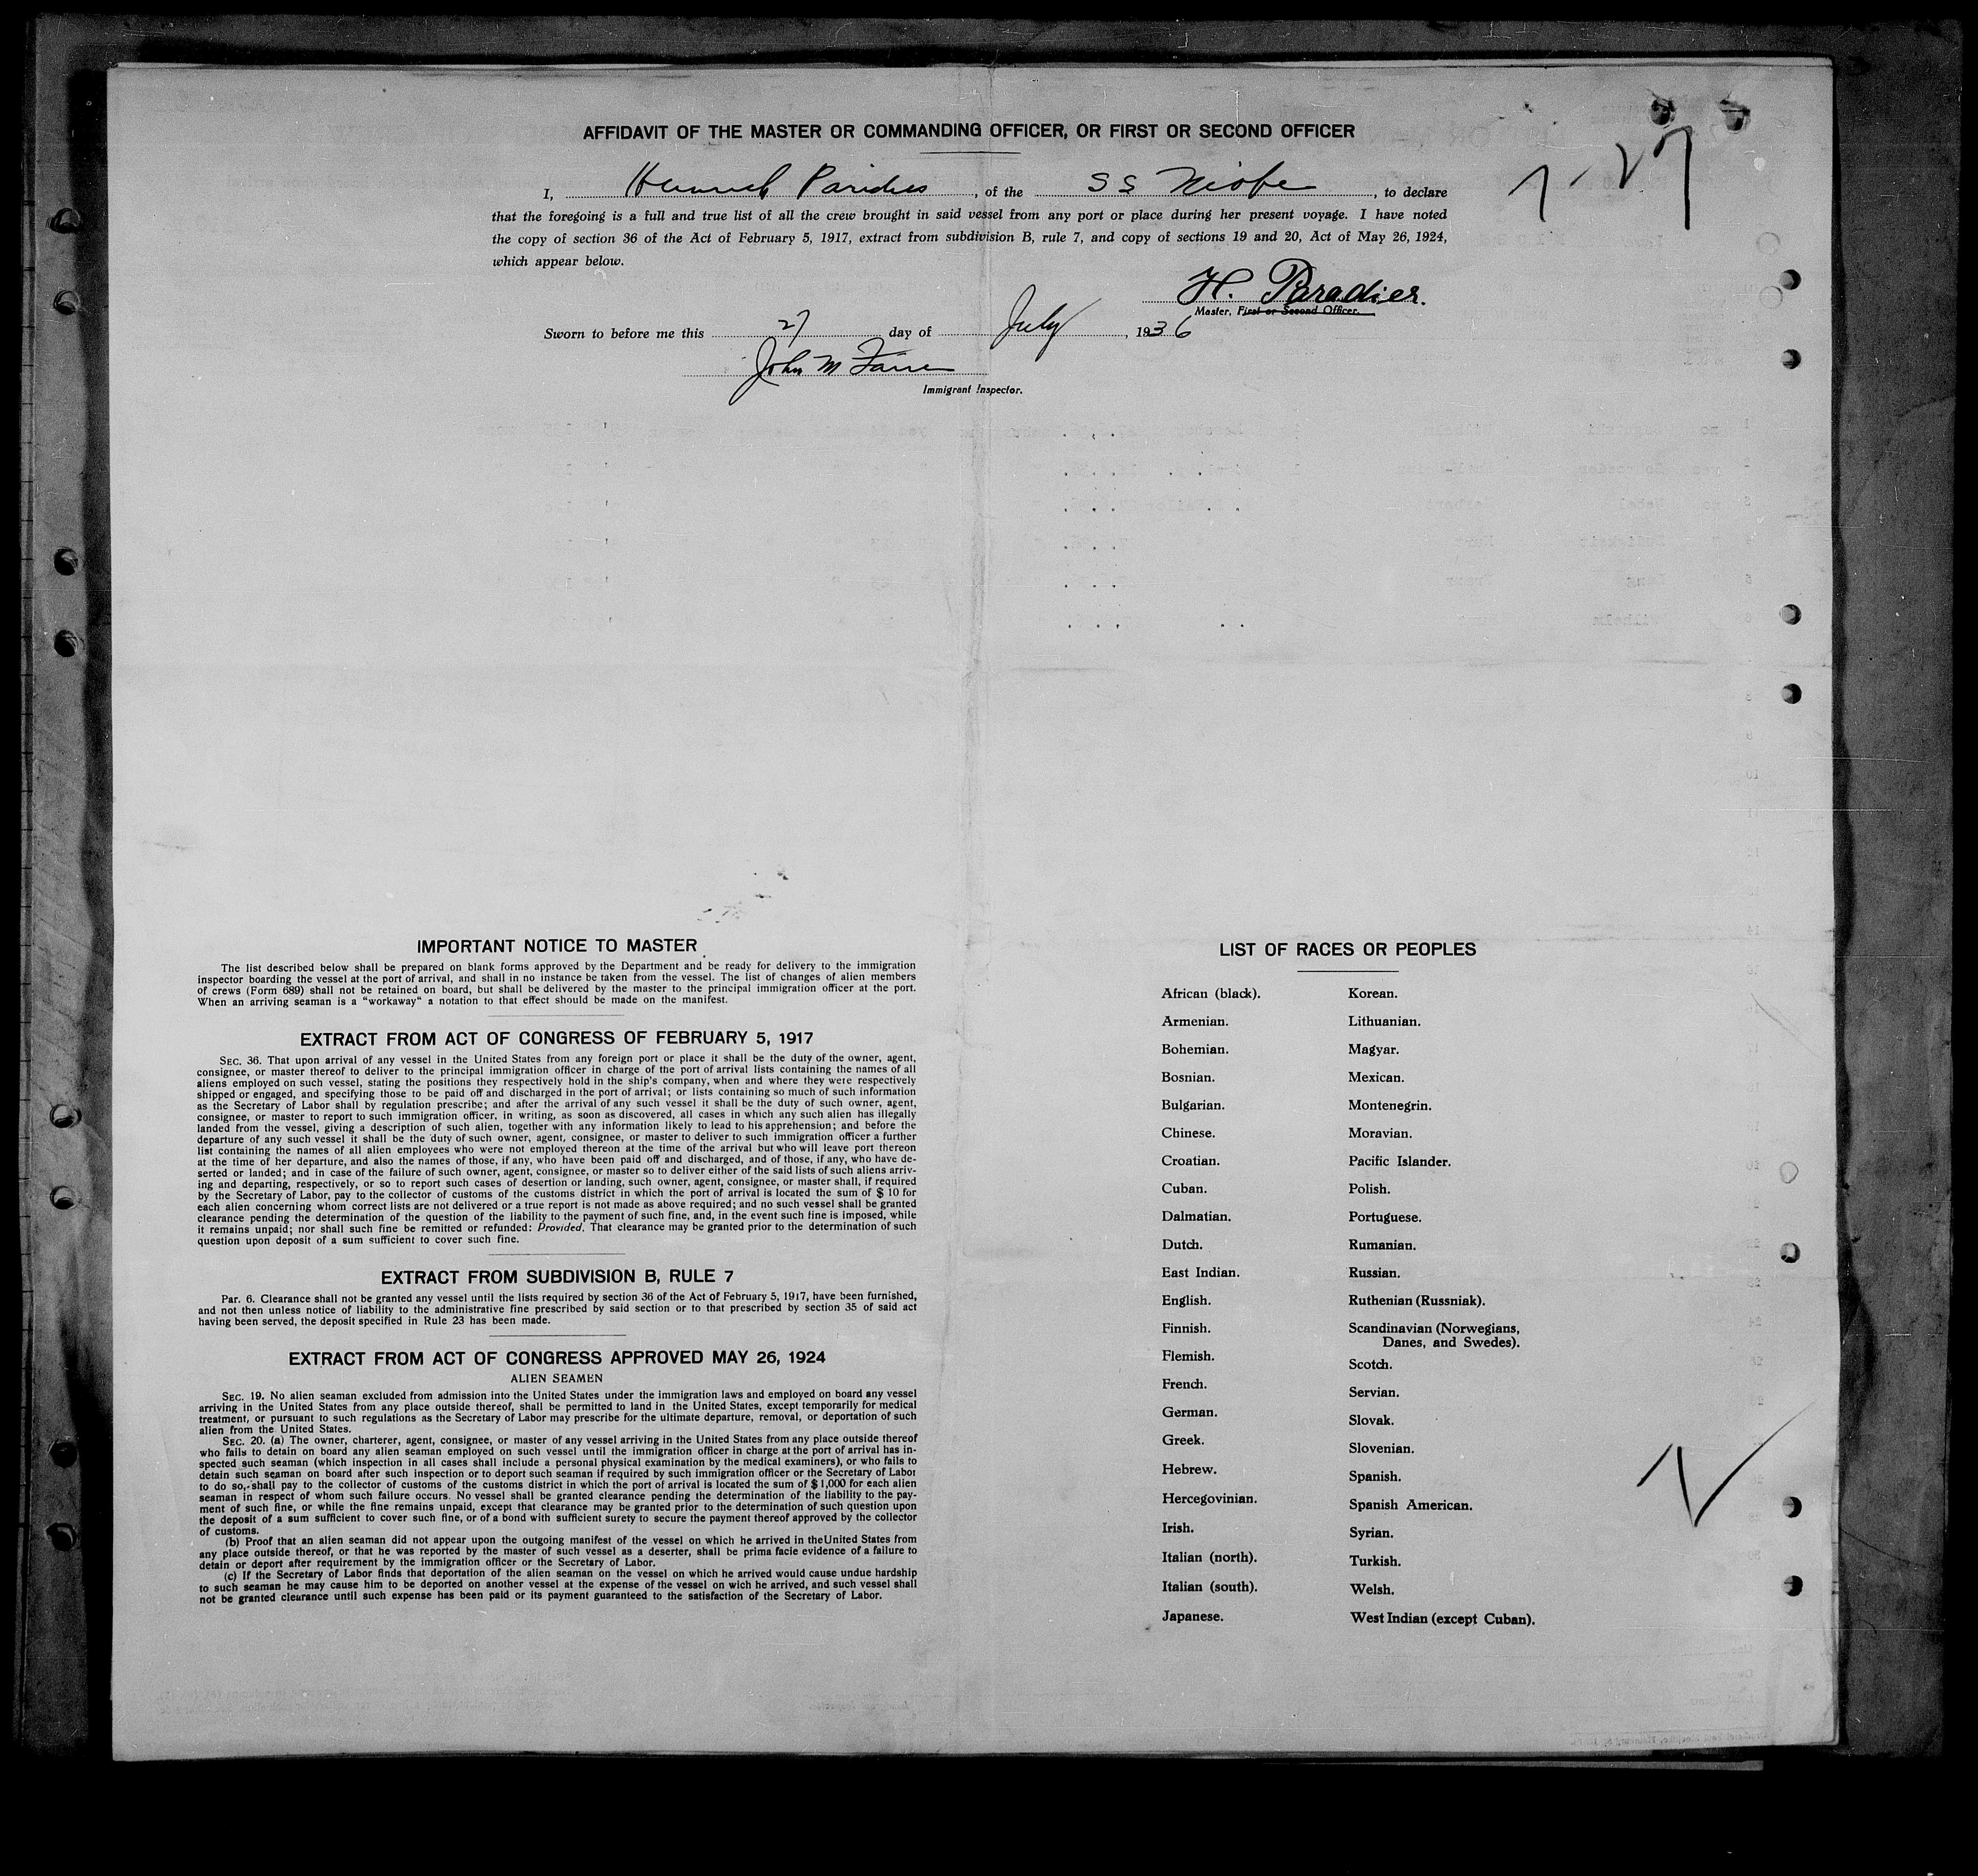 AFFIDAVIT OF THE MASTER OR COMMANDING OFFICER, OR FIRST OR SECOND OFFICER
7-27
I, Heinrich Paridies, of the SS Niobe, to declare
that the foregoing is a full and true list of all the crew brought in said vessel from any port or place during her present voyage. I have noted
the copy of section 36 of the Act of February 5, 1917, extract from subdivision B, rule 7, and copy of sections 19 and 20, Act of May 26, 1924,
which appear below.
H. Paradies.
Master, First or Second Officer.
Sworn to before me this 27 day of July, 1936
John M
Immigrant Inspector.
IMPORTANT NOTICE TO MASTER
The list described below shall be prepared on blank forms approved by the Department and be ready for delivery to the immigration
inspector boarding the vessel at the port of arrival, and shall in no instance be taken from the vessel. The list of changes of alien members
of crews (Form 689) shall not be retained on board, but shall be delivered by the master to the principal immigration officer at the port.
When an arriving seaman is a "workaway" a notation to that effect should be made on the manifest.
EXTRACT FROM ACT OF CONGRESS OF FEBRUARY 5, 1917
SEC. 36. That upon arrival of any vessel in the United States from any foreign port or place it shall be the duty of the owner, agent,
consignee, or master thereof to deliver to the principal immigration officer in charge of the port of arrival lists containing the names of all
aliens employed on such vessel, stating the positions they respectively hold in the ship's company, when and where they were respectively
shipped or engaged, and specifying those to be paid off and discharged in the port of arrival; or lists containing so much of such information
as the Secretary of Labor shall by regulation prescribe; and after the arrival of any such vessel it shall be the duty of such owner, agent,
consignee, or master to report to such immigration officer, in writing, as soon as discovered, all cases in which any such alien has illegally
landed from the vessel, giving a description of such alien, together with any information likely to lead to his apprehension; and before the
departure of any such vessel it shall be the duty of such owner, agent, consignee, or master to deliver to such immigration officer a further
list containing the names of all alien employees who were not employed thereon at the time of the arrival but who will leave port thereon
at the time of her departure, and also the names of those, if any, who have been paid off and discharged, and of those, if any, who have de-
serted or landed; and in case of the failure of such owner, agent, consignee, or master so to deliver either of the said lists of such aliens arriv-
ing and departing, respectively, or so to report such cases of desertion or landing, such owner, agent, consignee, or master shall, if required
by the Secretary of Labor, pay to the collector of customs of the customs district in which the port of arrival is located the sum of $ 10 for
each alien concerning whom correct lists are not delivered or a true report is not made as above required; and no such vessel shall be granted
clearance pending the determination of the question of the liability to the payment of such fine, and, in the event such fine is imposed, while
it remains unpaid; nor shall such fine be remitted or refunded: Provided, That clearance may be granted prior to the determination of such
question upon deposit of a sum sufficient to cover such fine.
EXTRACT FROM SUBDIVISION B, RULE 7
Par. 6. Clearance shall not be granted any vessel until the lists required by section 36 of the Act of February 5, 1917, have been furnished,
and not then unless notice of liability to the administrative fine prescribed by said section or to that prescribed by section 35 of said act
having been served, the deposit specified in Rule 23 has been made.
EXTRACT FROM ACT OF CONGRESS APPROVED MAY 26, 1924
ALIEN SEAMEN
SEC. 19. No alien seaman excluded from admission into the United States under the immigration laws and employed on board any vessel
arriving in the United States from any place outside thereof, shall be permitted to land in the United States, except temporarily for medical
treatment, or pursuant to such regulations as the Secretary of Labor may prescribe for the ultimate departure, removal, or deportation of such
alien from the United States.
SEC. 20. (a) The owner, charterer, agent, consignee, or master of any vessel arriving in the United States from any place outside thereof
who fails to detain on board any alien seaman employed on such vessel until the immigration officer in charge at the port of arrival has in-
spected such seaman (which inspection in all cases shall include a personal physical examination by the medical examiners), or who fails to
detain such seaman on board after such inspection or to deport such seaman if required by such immigration officer or the Secretary of Labor
to do so, shall pay to the collector of customs of the customs district in which the port of arrival is located the sum of $1,000 for each alien
seaman in respect of whom such failure occurs. No vessel shall be granted clearance pending the determination of the liability to the pay-
ment of such fine, or while the fine remains unpaid, except that clearance may be granted prior to the determination of such question upon
the deposit of a sum sufficient to cover such fine, or of a bond with sufficient surety to secure the payment thereof approved by the collector
of customs.
(b) Proof that an alien seaman did not appear upon the outgoing manifest of the vessel on which he arrived in theUnited States from
any place outside thereof, or that he was reported by the master of such vessel as a deserter, shall be prima facie evidence of a failure to
detain or deport after requirement by the immigration officer or the Secretary of Labor.
(c) If the Secretary of Labor finds that deportation of the alien seaman on the vessel on which he arrived would cause undue hardship
to such seaman he may cause him to be deported on another vessel at the expense of the vessel on wich he arrived, and such vessel shall
not be granted clearance until such expense has been paid or its payment guaranteed to the satisfaction of the Secretary of Labor.
LIST OF RACES OR PEOPLES
African (black).
Armenian.
Bohemian.
Bosnian.
Bulgarian.
Chinese.
Croatian.
Cuban.
Dalmatian.
Dutch.
East Indian.
English.
Finnish.
Flemish.
French.
German.
Greek.
Hebrew.
Hercegovinian.
Irish.
Italian (north).
Italian (south).
Japanese.
Korean.
Lithuanian.
Magyar.
Mexican.
Montenegrin.
Moravian.
Pacific Islander.
Polish.
Portuguese.
Rumanian.
Russian.
Ruthenian (Russniak).
Scandinavian (Norwegians,
Danes, and Swedes).
Scotch.
Servian.
Slovak.
Slovenian.
Spanish.
Spanish American.
Syrian.
Turkish.
Welsh.
West Indian (except Cuban).